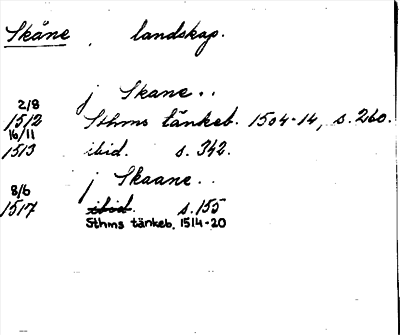 Skåne, landskap.
j Skane..
2/8
1512 Sthms tänkeb. 1504-14, s. 260.
16/11
1513 ibid. s. 342.
j Skaane..
8/6
1517 ibid. s. 155
Sthms tänkeb. 1514-20